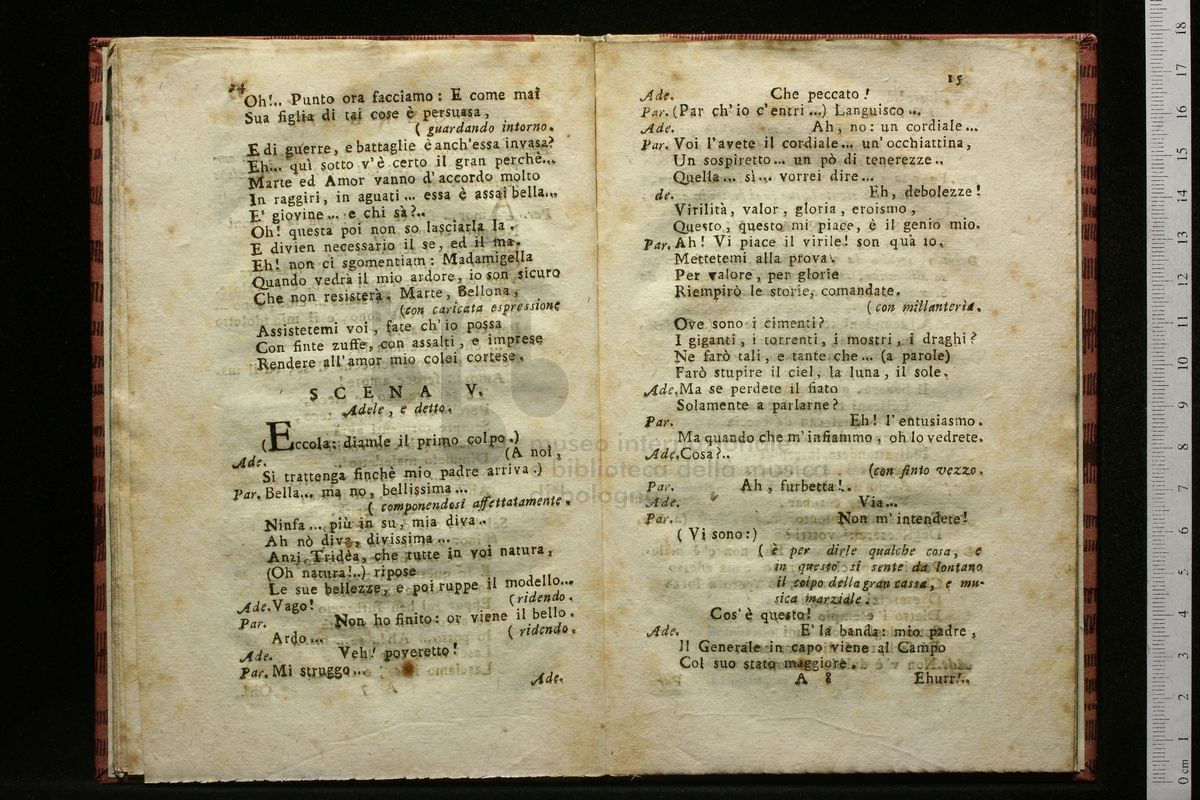 14
Oh!.. Punto ora facciamo: E come mai
Sua figlia di tai cose è persuasa,
( guardando intorno.
E di guerre, e battaglie è anch'essa invasa?
Eh... quì sotto v'è certo il gran perchè...
Marte ed Amor vanno d'accordo molto
In raggiri, in aguati... essa è assai bella...
E' giovine... e chi sà?..
Oh! questa poi non so lasciarla là.
E divien necessario il se, ed il ma.
Eh! non ci sgomentiam: Madamigella
Quando vedrà il mio ardore, io son sicuro
Che non resisterà. Marte, Bellona,
(con caricata espressione
Assistetemi voi, fate ch'io possa
Con finte zuffe, con assalti, e imprese
Rendere all'amor mio colei cortese.
SCENA V.
Adele, e detto.
(Eccola: diamle il primo colpo.)
Ade. (A noi,
Si trattenga finchè mio padre arriva.)
Par. Bella... ma no, bellissima...
( componendosi affettatamente.
Ninfa... più in su, mia diva..
Ah nò diva, divissima...
Anzi Tridèa, che tutte in voi natura,
(Oh natura!..) ripose
Le sue bellezze, e poi ruppe il modello...
Ade. Vago! (ridendo.
Par. Non ho finito: or viene il bello.
Ardo... ( ridendo.
Ade. Veh! poveretto!
Par. Mi struggo...
Ade.
15
Ade. Che peccato!
Par. (Par ch'io c'entri...) Languisco...
Ade. Ah, no: un cordiale...
Par. Voi l'avete il cordiale... un'occhiattina,
Un sospiretto... un pò di tenerezze..
Quella... sì... vorrei dire...
de. Eh, debolezze!
Virilità, valor, gloria, eroismo,
Questo, questo mi piace, è il genio mio.
Par. Ah! Vi piace il virile! son quà io.
Mettetemi alla prova.
Per valore, per glorie
Riempirò le storie, comandate.
( con millanteria.
Ove sono i cimenti?
I giganti, i torrenti, i mostri, i draghi?
Ne farò tali, e tante che... (a parole)
Farò stupire il ciel, la luna, il sole.
Ade. Ma se perdete il fiato
Solamente a parlarne?
Par. Eh! l'entusiasmo.
Ma quando che m'infiammo, oh lo vedrete.
Ade. Cosa?..
(con finto vezzo.
Par. Ah, furbetta!..
Ade. Via...
Par. Non m'intendete!
( Vi sono:)
( è per dirle qualche cosa, e
in questo si sente da lontano
il colpo della gran cassa, e mu-
sica marziale.
Cos'è questo!
Ade. E' la banda: mio padre,
Il Generale in capo viene al Campo
Col suo stato maggiore.
A 8 Ehurr!..
museo internazionale
biblioteca della musica
di bologna
0 cm 1 2 3 4 5 6 7 8 9 10 11 12 13 14 15 16 17 18